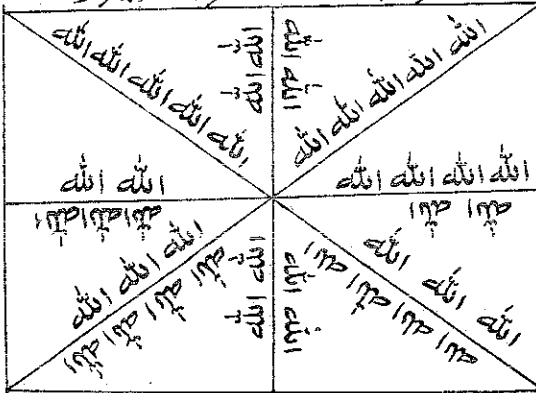 الله الله الله الله الله
الله الله
الله الله
الله الله الله الله الله
الله الله الله الله
الله الله
الله الله
الله الله الله
الله الله الله
الله الله الله الله الله
الله الله
الله الله
الله الله الله الله الله
الله الله الله